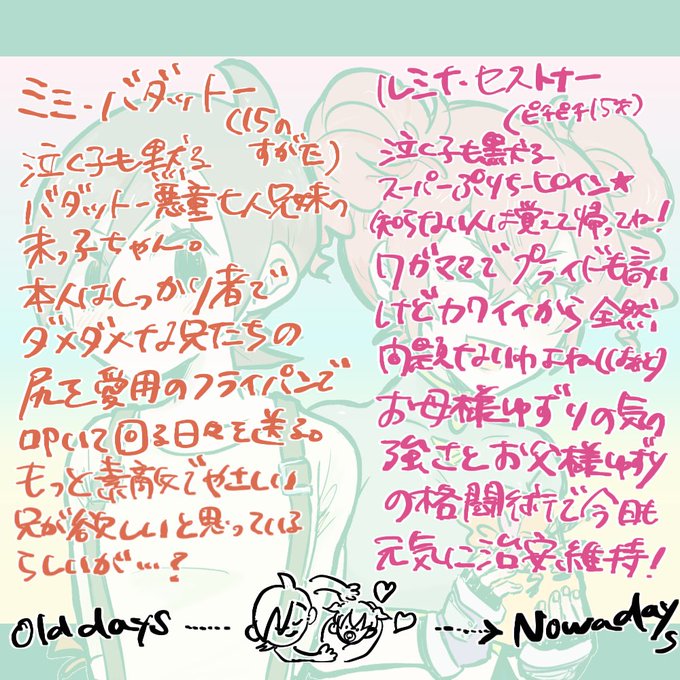 ミミ・バダットー
(15の
すがた)
泣く子も黙る
バダットー悪童七人兄妹の
末っ子ちゃん。
本人はしっかり者で
ダメダメな兄たちの
尻を愛用のフライパンで
叩いて回る日々を送る。
もっと素敵でやさしい
兄が欲しいと思っている
らしいが…?
ルミナ・セストナー
(ピチピチ15才)
泣く子も黙る
スーパーぷりちーヒロイン★
知らない人は覚えて帰ってね!
ワガママでプライドも高い
けどカワイイから全然
問題ないわよね((はぁと)
お母様ゆずりの気の
強さとお父様ゆずり
の格闘術で今日も
元気に治安維持!
Old days ‥‥‥ ‥‥> Nowadays